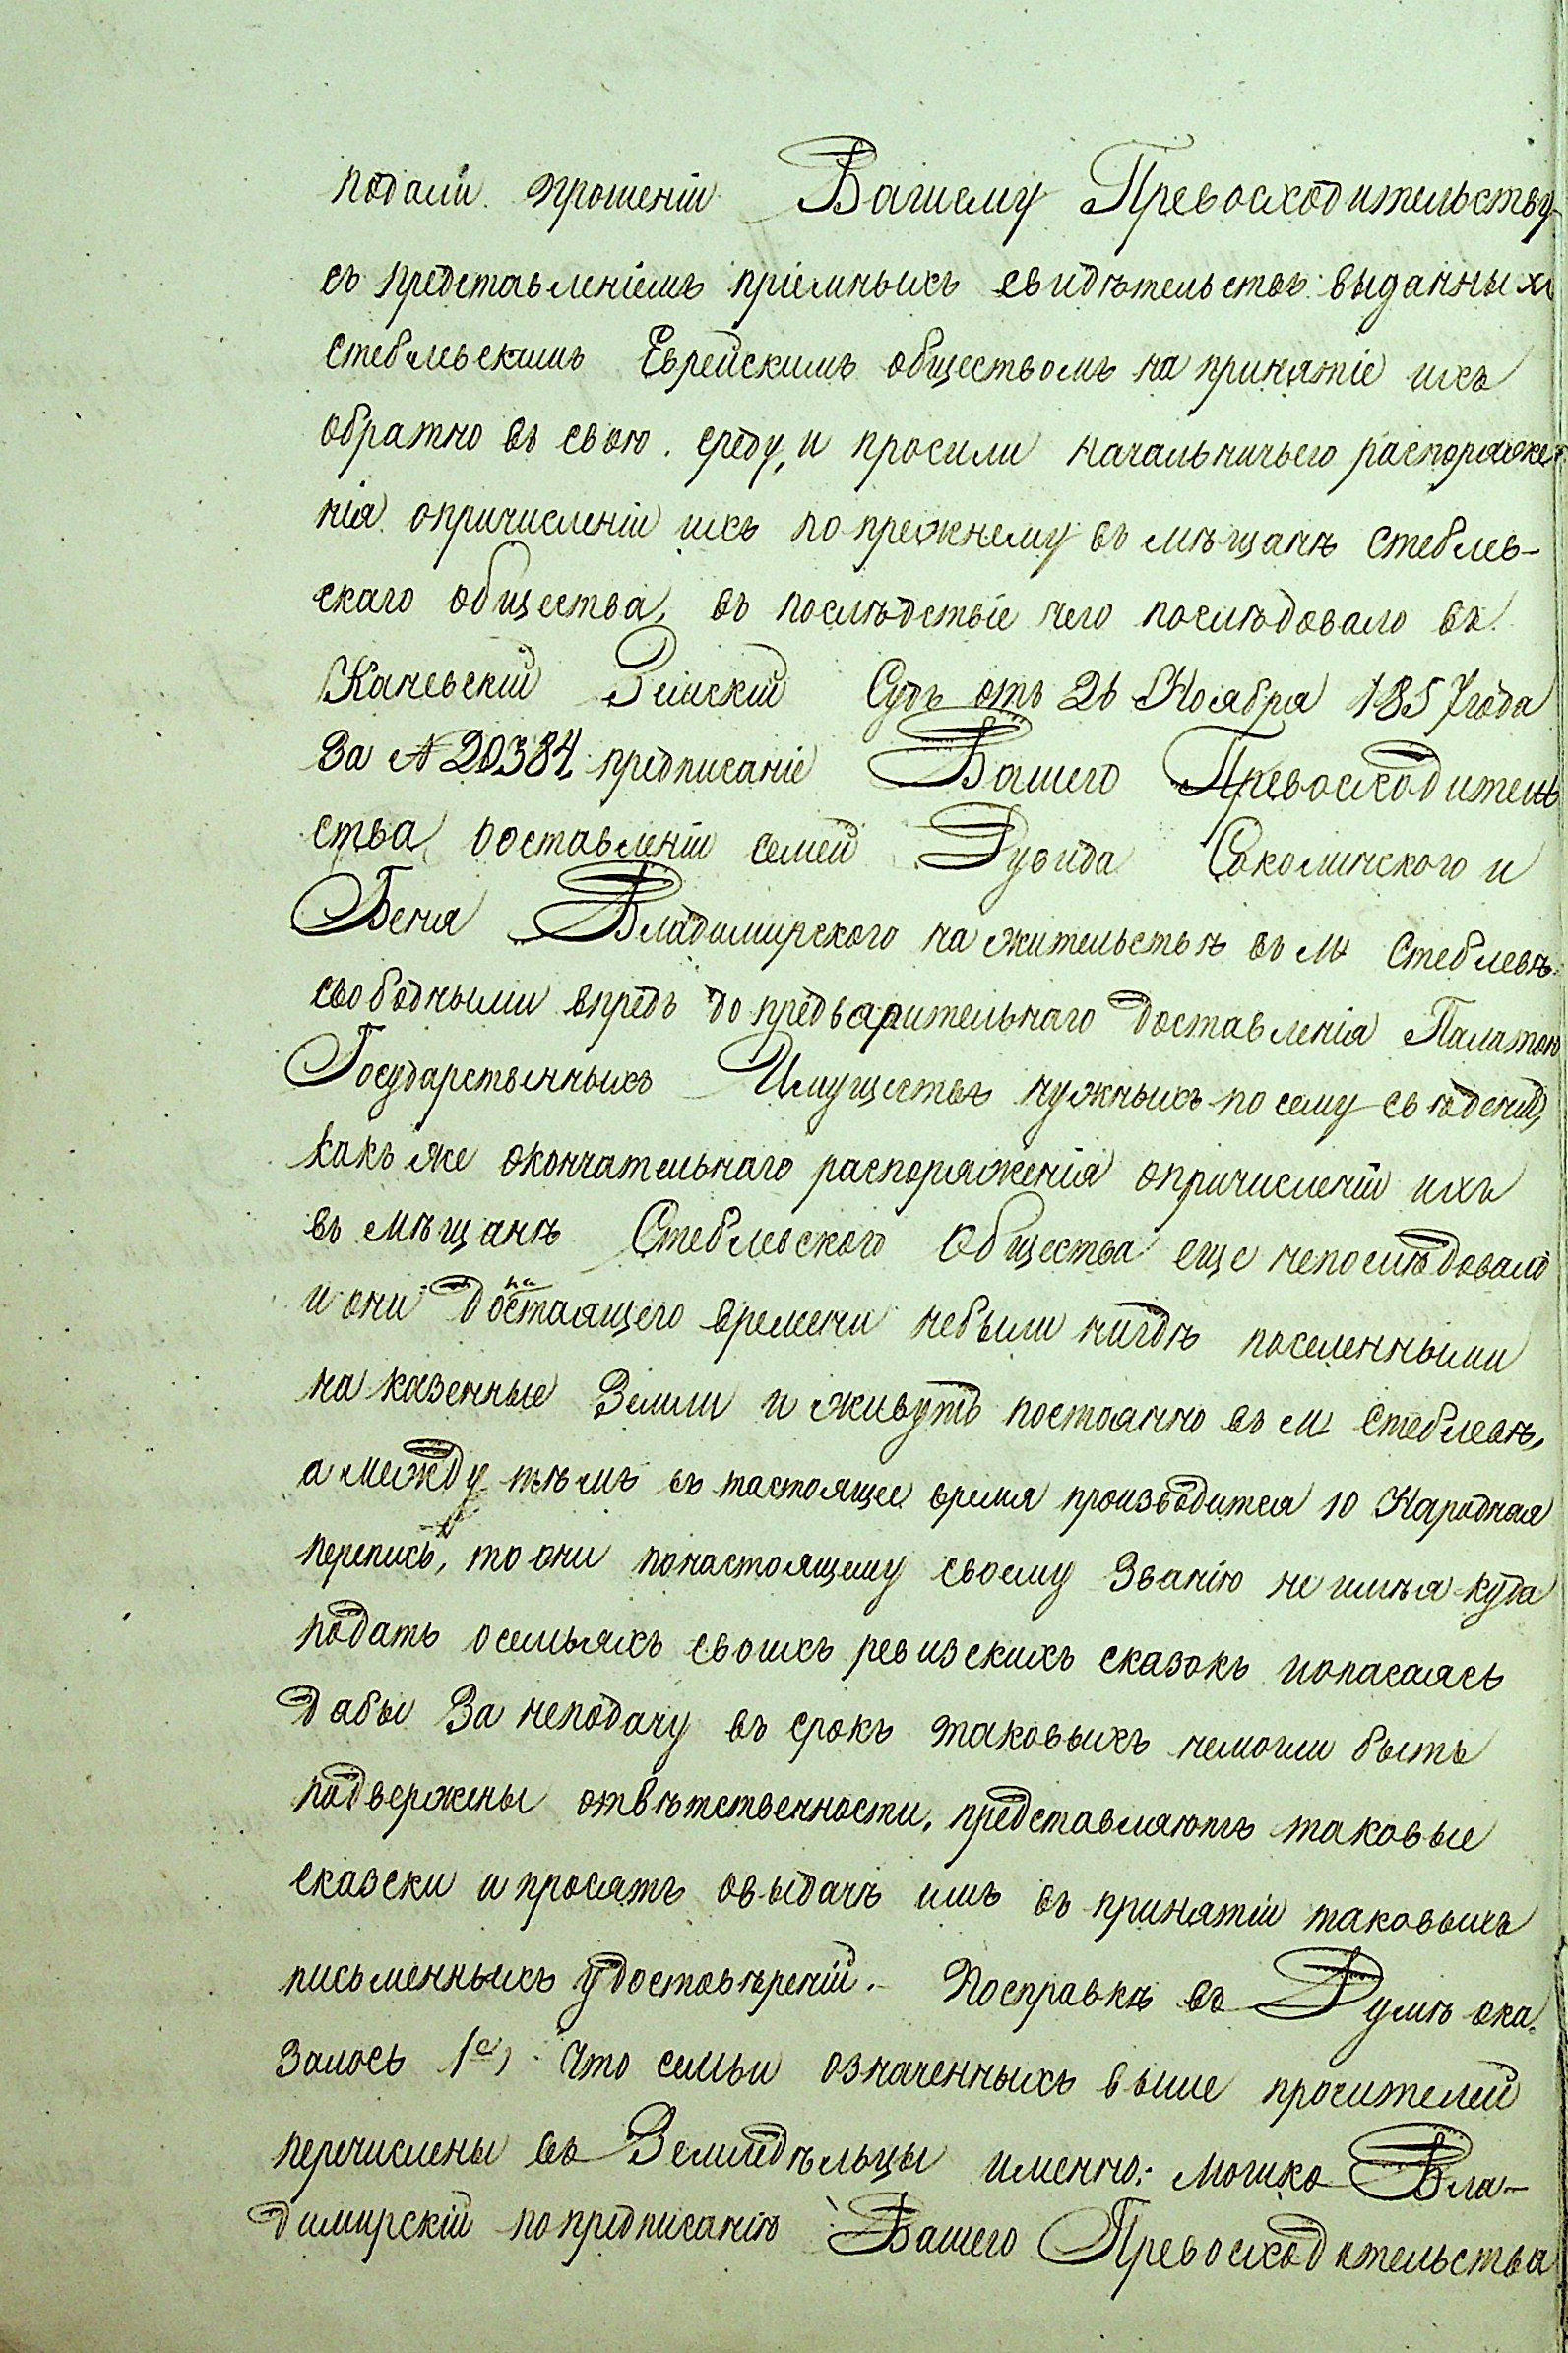 подали прошеніи Вашему Превосходительству
съ представленіемъ пріемныхъ свидѣтельствъ выданныхъ
Стеблевскимъ Еврейскимъ обществомъ на принятіе ихъ
обратно въ свою среду, и просили начальничьего распоряже-
нія опричисленіи ихъ по прежнему въ мѣщанѣ Стеблев-
скаго общества, въ послѣдствіе чего послѣдовало въ
Каневскій Земскій Судъ отъ 26 Ноября 1857 года
За № 20384, предписаніе Вашего Превосходитель
ства, оставленіи семей Рувида Соколинского и
Беня Владимирского на жительствѣ въ м Стеблевѣ
свободными впредь до предварительнаго доставленія Палатою
Государственныхъ Имуществъ нужныхъ по сему свѣденій,
какъ же окончательнаго распоряженія опричисленіи ихъ
въ мѣщанѣ Стеблевского Общества еще непослѣдовало
и они до настаящего времени небыли нигдѣ поселенными
на казенные Земли и живутъ постоянно въ м Стеблевѣ,
а между тѣмъ въ настоящее время производится 10 Народная
перепись, то они понастоящему своему Званію не имѣя куда
подать осемьяхъ своихъ ревизскихъ сказокъ иопасаясь
дабы За неподачу въ срокъ таковыхъ немогли быть
подвержены отвѣтственности, представляютъ таковые
сказски и просятъ овыдачѣ имъ въ принятіи таковыхъ
письменныхъ удостовѣреній. Посправкѣ въ Думѣ ока-
залось 1е, Что семьи означенныхъ выше просителей
перечислены въ Земледѣльцы именно: мошко Вла-
димирскій попредписанію Вашего Превосходительства